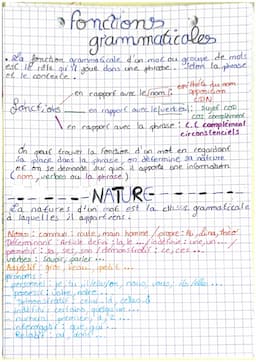 fonctions
grammaticales
• La fonction grammaticale d'un mot ou groupe de mots
est le rôle qu'il joue dans une phrase. selon la phrase
et le contexte.
en rapport avec le nom : épithète du nom
apposition
CDN
fonctions en rapport avec le verbe : Sujet COD
COI complément
en rapport avec la phrase : C.C complément
circonstanciels
On peut trouver la fonction d'un mot en regardant
sa place dans la phrase, on détermine sa nature
et on se demande sur quoi il apporte une information
(nom, verbes ou la phrase)
NATURE
La natures d'un mot est la classe grammaticale
à laquelles il appartient :
Noms : commun : route, main homme / propre :
Déterminant : Article défini : la, le... / indéfini : une, un... /
possessif : sa, ses, son / démonstratif : ce, ces...
verbes : savoir, parler...
Adjectif : gros, beau, petit...
pronoms :
personnel : je, tu, il/elle/on, nous, vous, ils/elles...
possessif : notre...
démonstratif : celui-là, celles
indéfini : certains, quelqu'un...
numéral : premier, 2...
interrogatif : que, qui...
Relatif : où, dont...